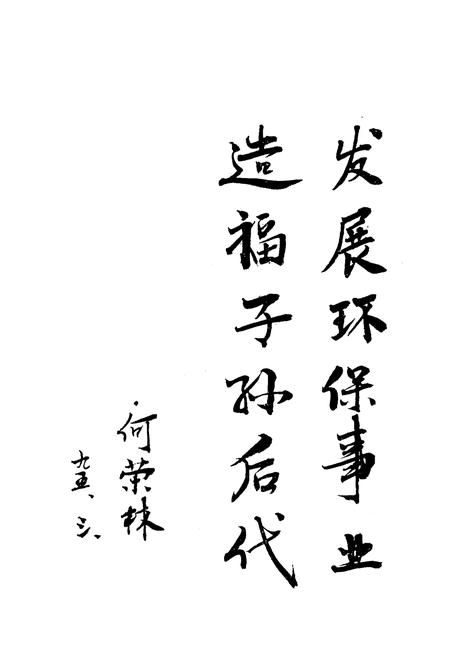 发展环保事业
造福子孙后代
何荣林
九五、三、